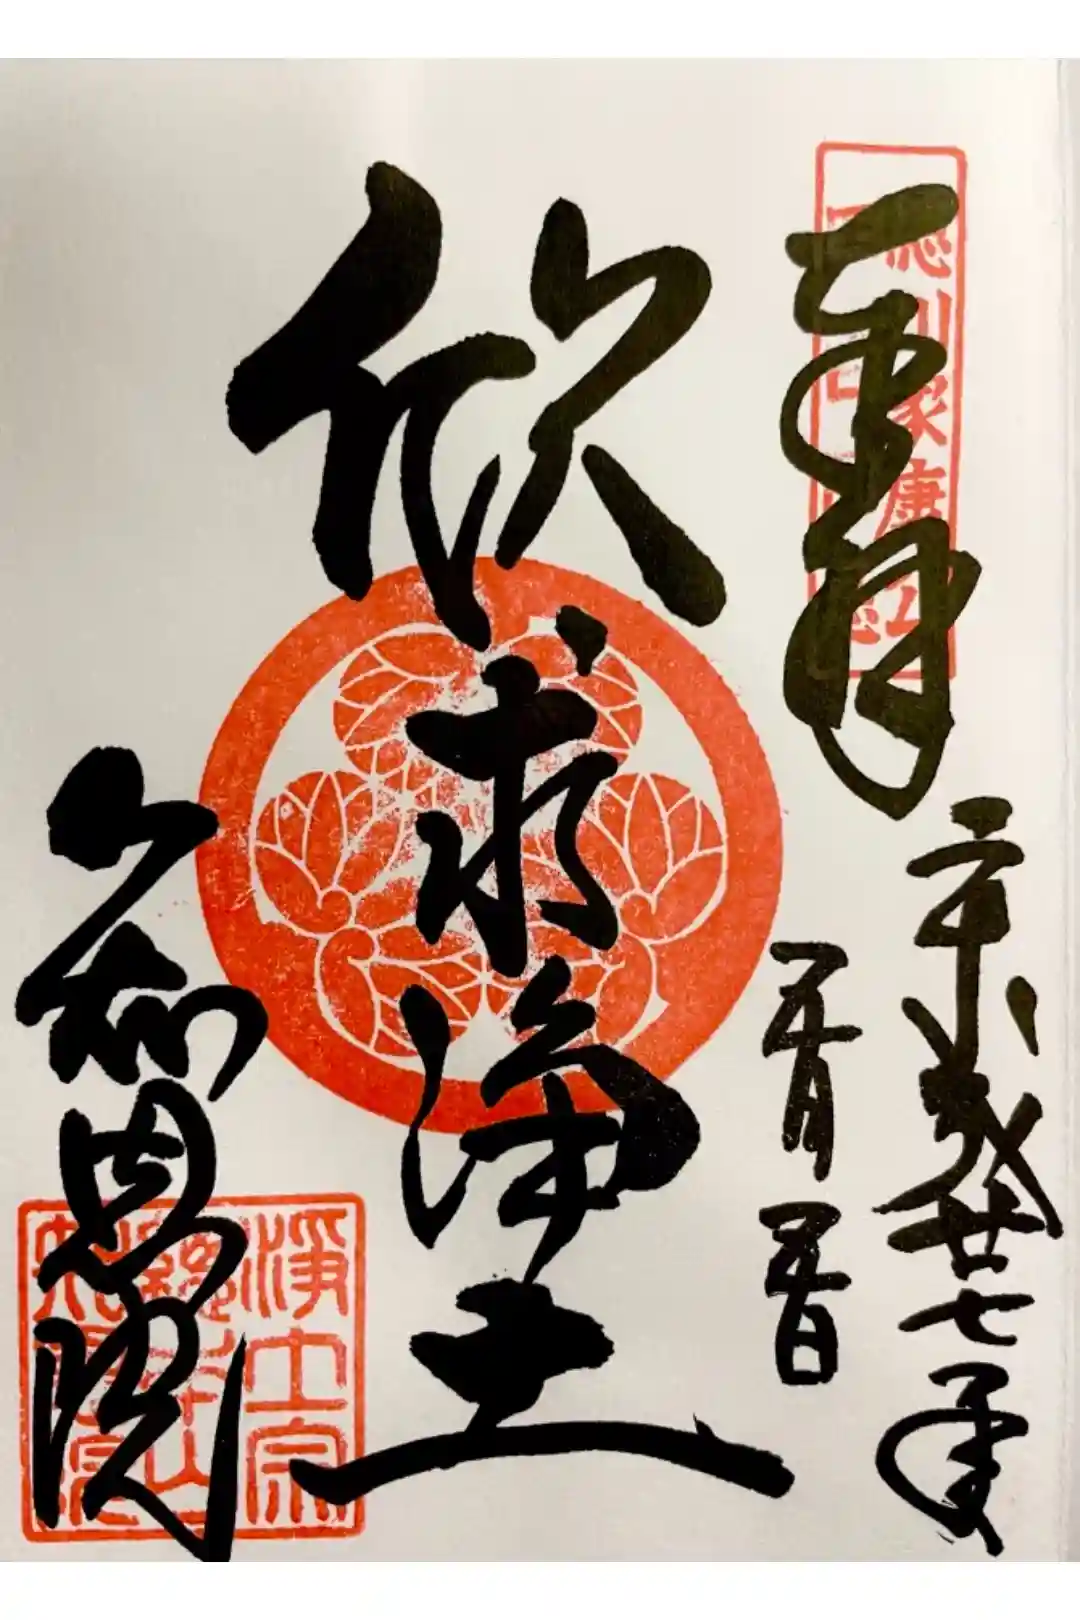 徳川家康公
奉拝
平成廿七年
欣求浄土
知恩院
淨土宗
總本山
知恩院